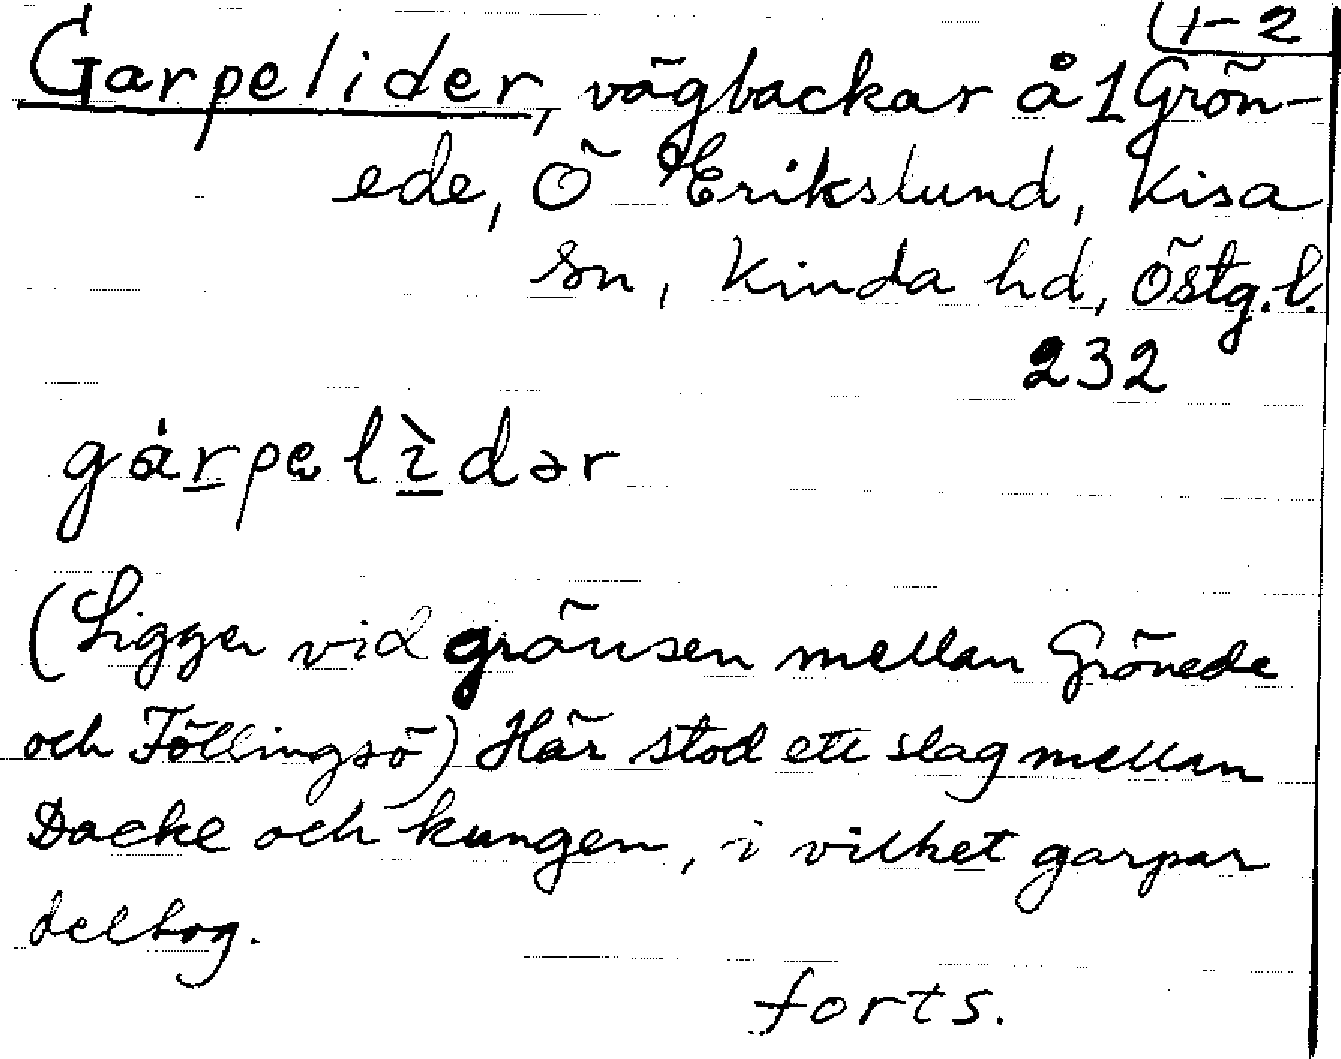 1-2
Garpelider, vägbackar å 1 Grön-
ede, Ö Erikslund, Kisa
sn, Kinda hd, Östg.l.
232
gárpelìdər
(Ligger vid gränsen mellan Grönede
och Föllingsö) Här stod ett slag mellan
Dacke och kungen, i vilket garpar
deltog.
forts.